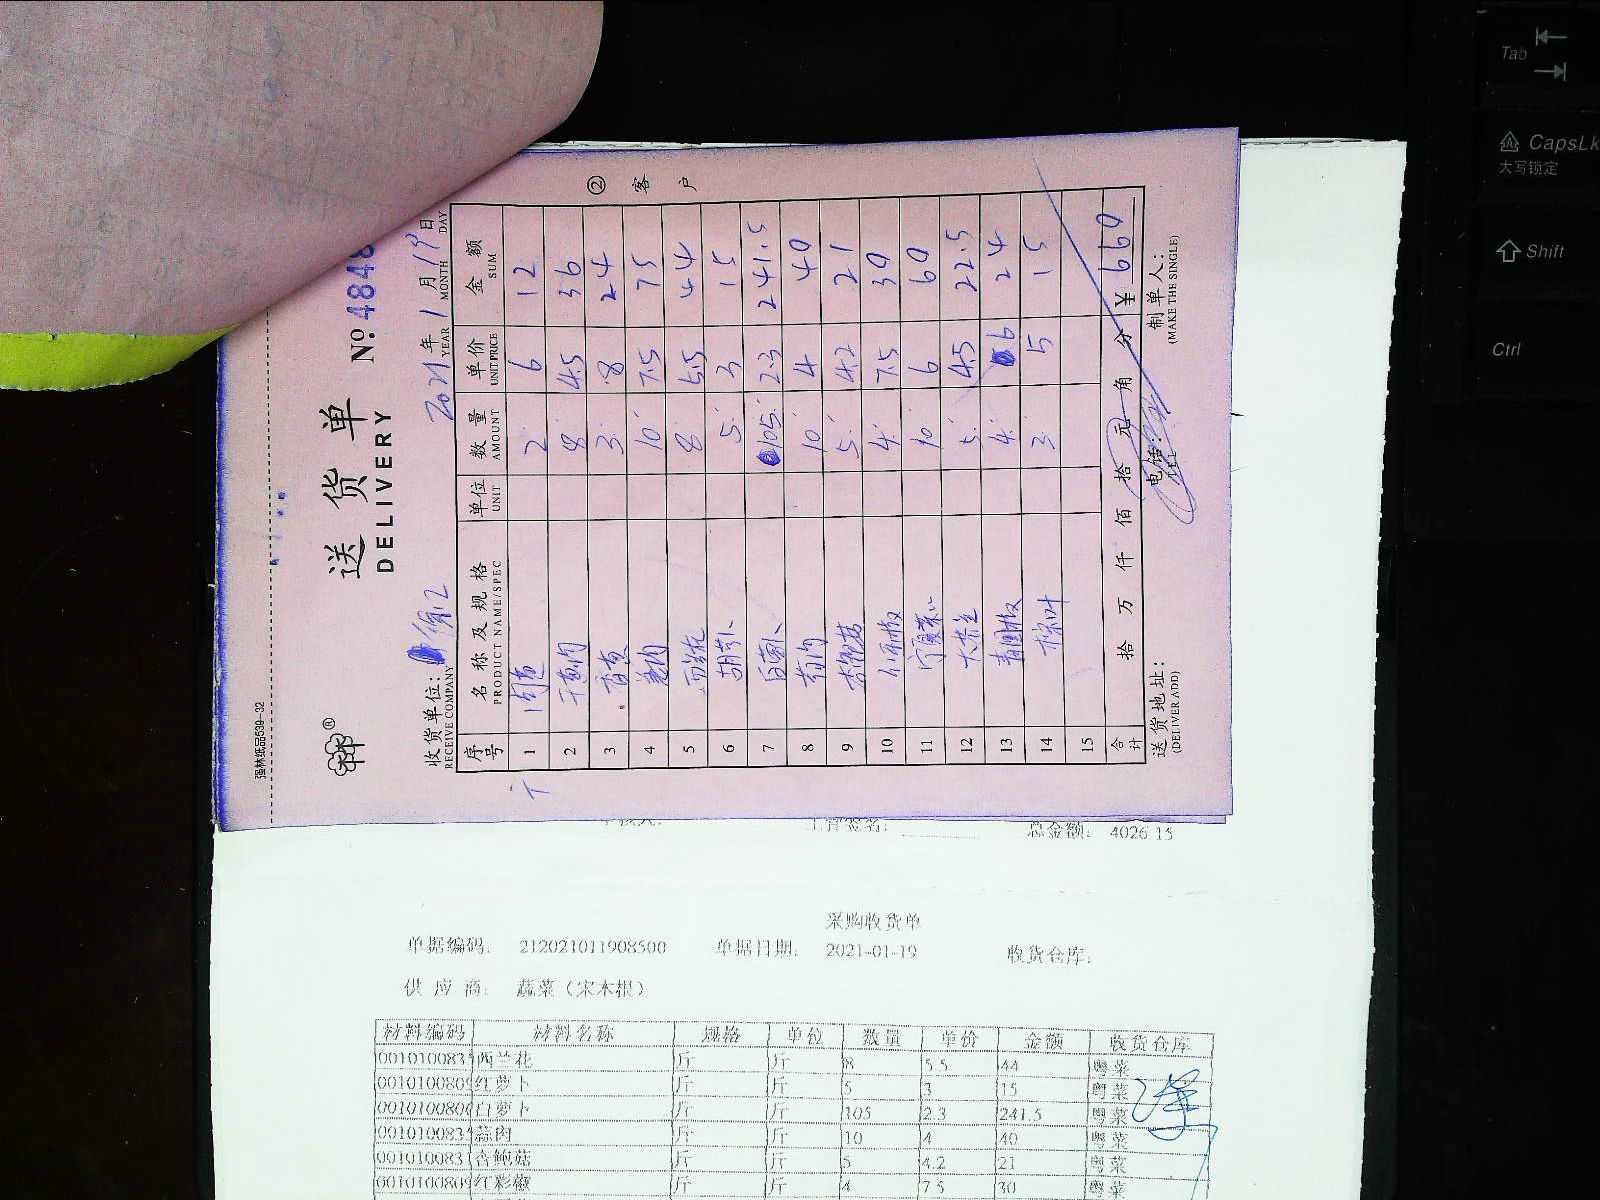 强林纸品539-32
送货单
DELIVERY
№ 4848
② 客户
收货单位:
RECEIVE COMPANY
2021年 1月 19日
YEAR MONTH DAY
序号 名称及规格 单位 数量 单价 金额
PRODUCT NAME/SPEC UNIT AMOUNT UNIT PRICE SUM
1 2 6 12
2 干葱肉 8 4.5 36
3 香葱 3 8 24
4 姜肉 10 7.5 75
5 西兰花 8 5.5 44
6 胡萝卜 5 3 15
7 白萝卜 105 2.3 241.5
8 蒜肉 10 4 40
9 杏鲍菇 5 4.2 21
10 红彩椒 4 7.5 30
11 10 6 60
12 5 4.5 22.5
13 青圆椒 4 6 24
14 3 5 15
15
合计 拾 万 仟 佰 拾 元 角 分 ¥ 660
送货地址: 电话: 制单人:
(DELIVER ADD) TEL (MAKE THE SINGLE)
主管签名: 总金额: 4026.15
采购收货单
单据编码: 212021011908500 单据日期: 2021-01-19 收货仓库:
供 应 商: 蔬菜（宋木根）
材料编码 材料名称 规格 单位 数量 单价 金额 收货仓库
001010083 西兰花 斤 斤 8 5.5 44 粤菜
001010080 红萝卜 斤 斤 5 3 15 粤菜
001010080 白萝卜 斤 斤 105 2.3 241.5 粤菜
001010083 蒜肉 斤 斤 10 4 40 粤菜
001010083 杏鲍菇 斤 斤 5 4.2 21 粤菜
001010080 红彩椒 斤 斤 4 7.5 30 粤菜
Tab
CapsLk
大写锁定
Shift
Ctrl